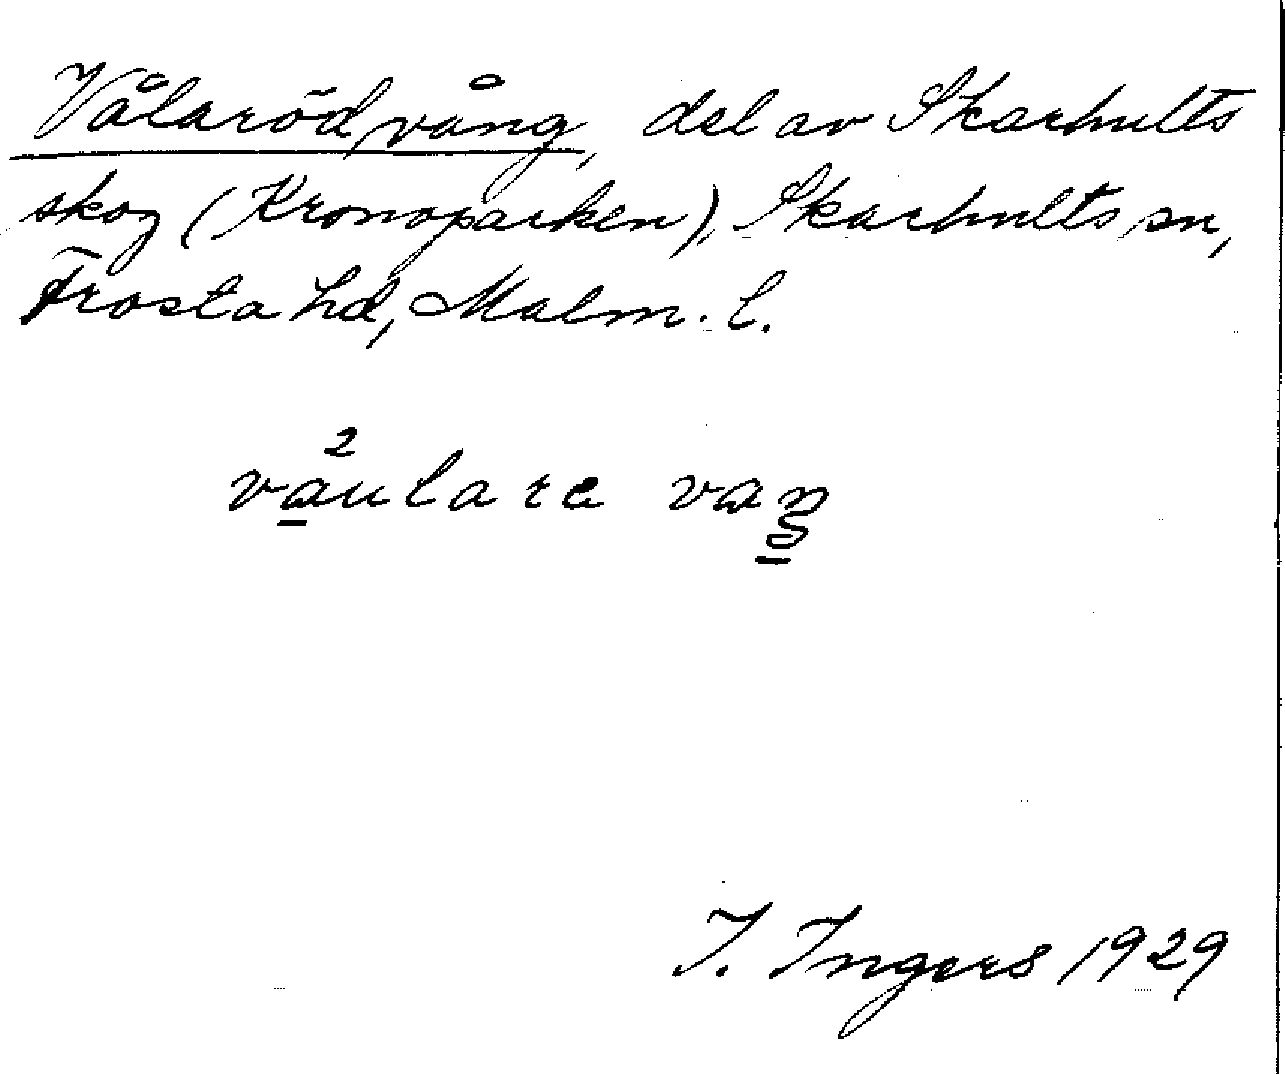 Vålaröd vång, del av Skarhults
skog (Kronoparken), Skarhults sn,
Frosta hd, Malm. l.
våulare vaŋ
I. Ingers 1929